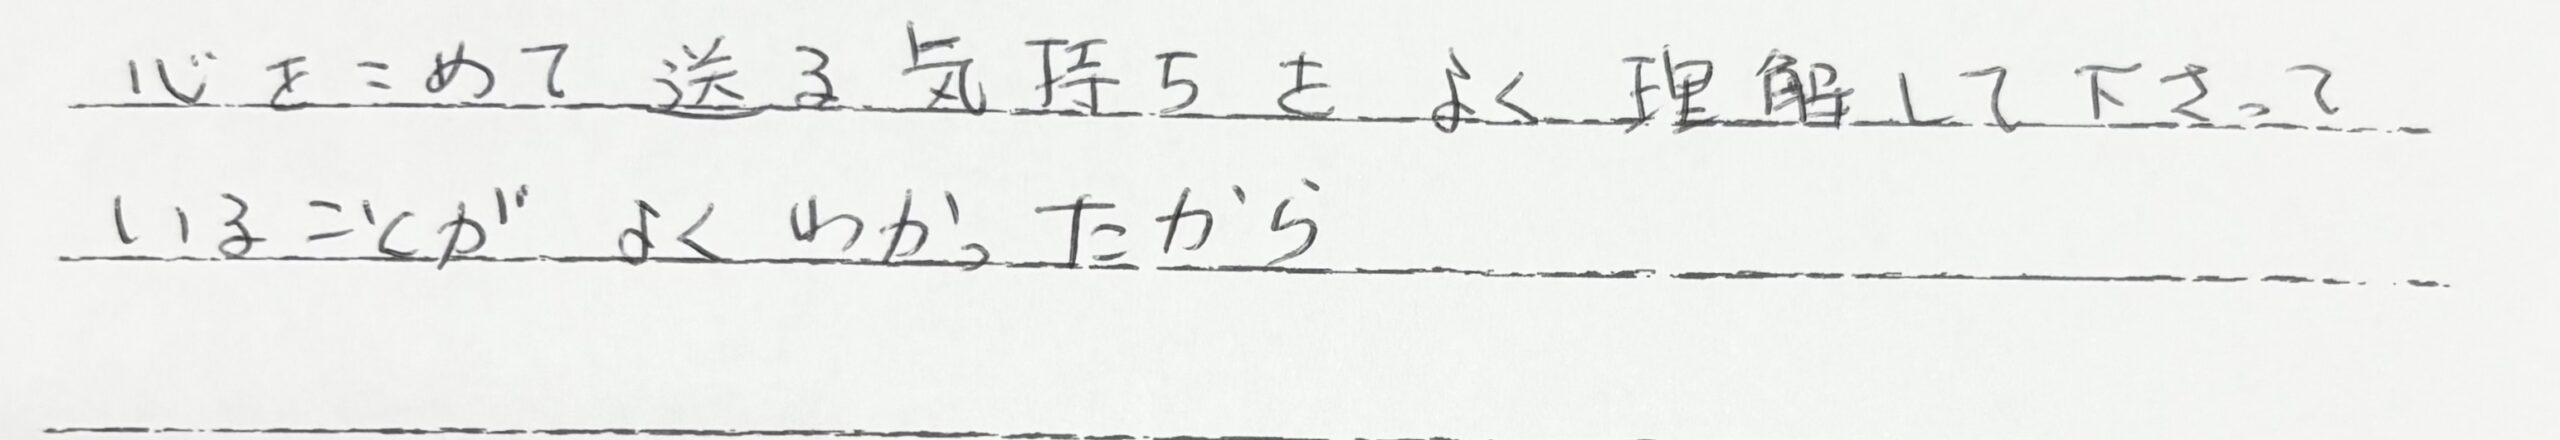 心をこめて送る気持ちをよく理解して下さって
いることがよくわかったから